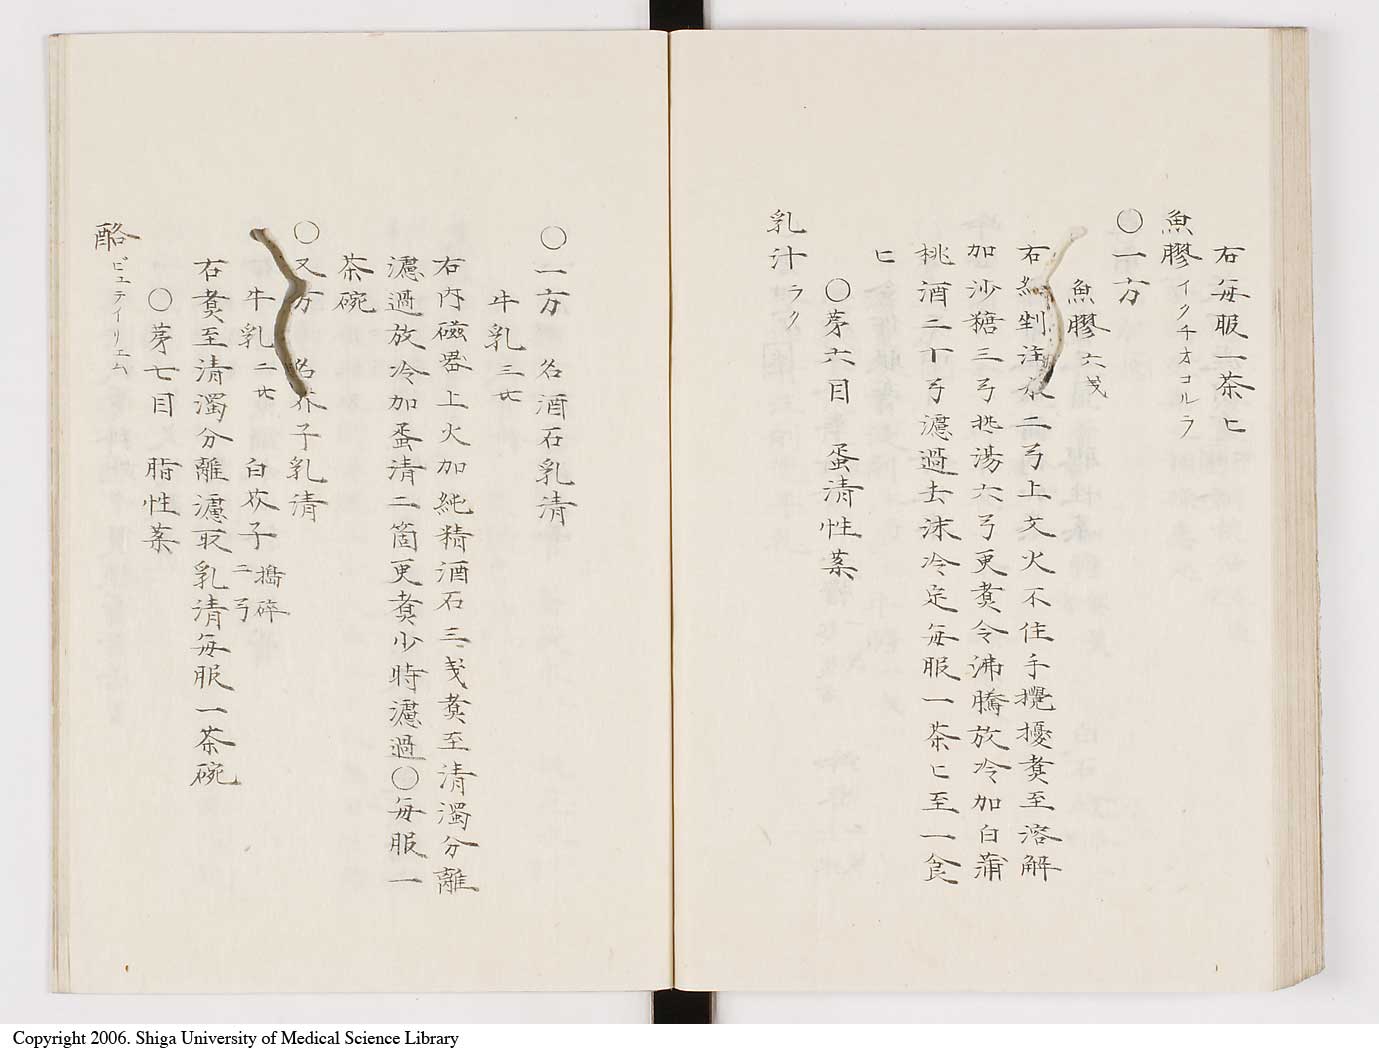 右毎服一茶匕
魚膠 イクチオコルラ
○一方
魚膠 六戔
右細剉注水二弓上文火不住手攪擾煑至溶解
加沙糖三弓熱湯六弓更煑令沸騰放冷加白蒲
桃酒二十弓濾過去沫冷定毎服一茶匕至一食
匕
○苐六目 蛋清性薬
乳汁 ラク
○一方 名酒石乳清
牛乳 三㐂
右内磁器上火加純精酒石三戔煑至清濁分離
濾過放冷加蛋清二箇更煑少時濾過○毎服一
茶碗
○又方 名芥子乳清
牛乳 二㐂 白芥子 搗碎 二弓
右煑至清濁分離濾取乳清毎服一茶碗
○苐七目 脂性薬
酪 ビュテイリュム
Copyright 2006. Shiga University of Medical Science Library